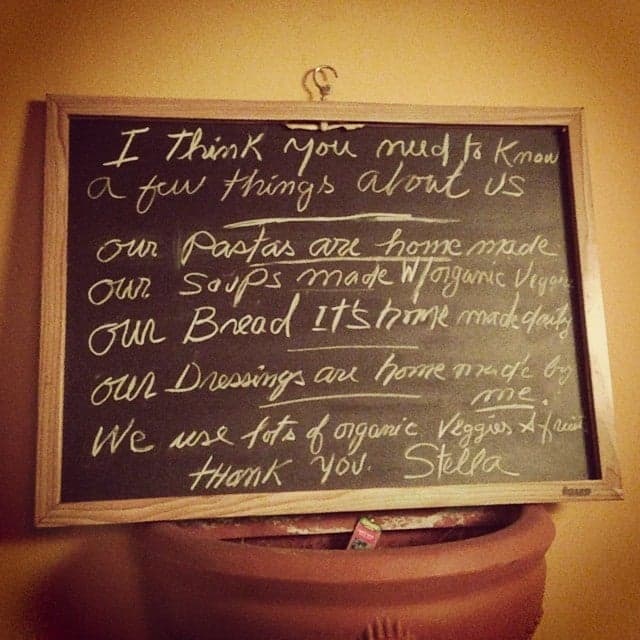 I think you need to know
a few things about us
our pastas are home made
our soups made w/organic Veggies
our Bread It's home made daily
our Dressings are home made by
me.
We use lots of organic Veggies & fruit
thank you. Stella